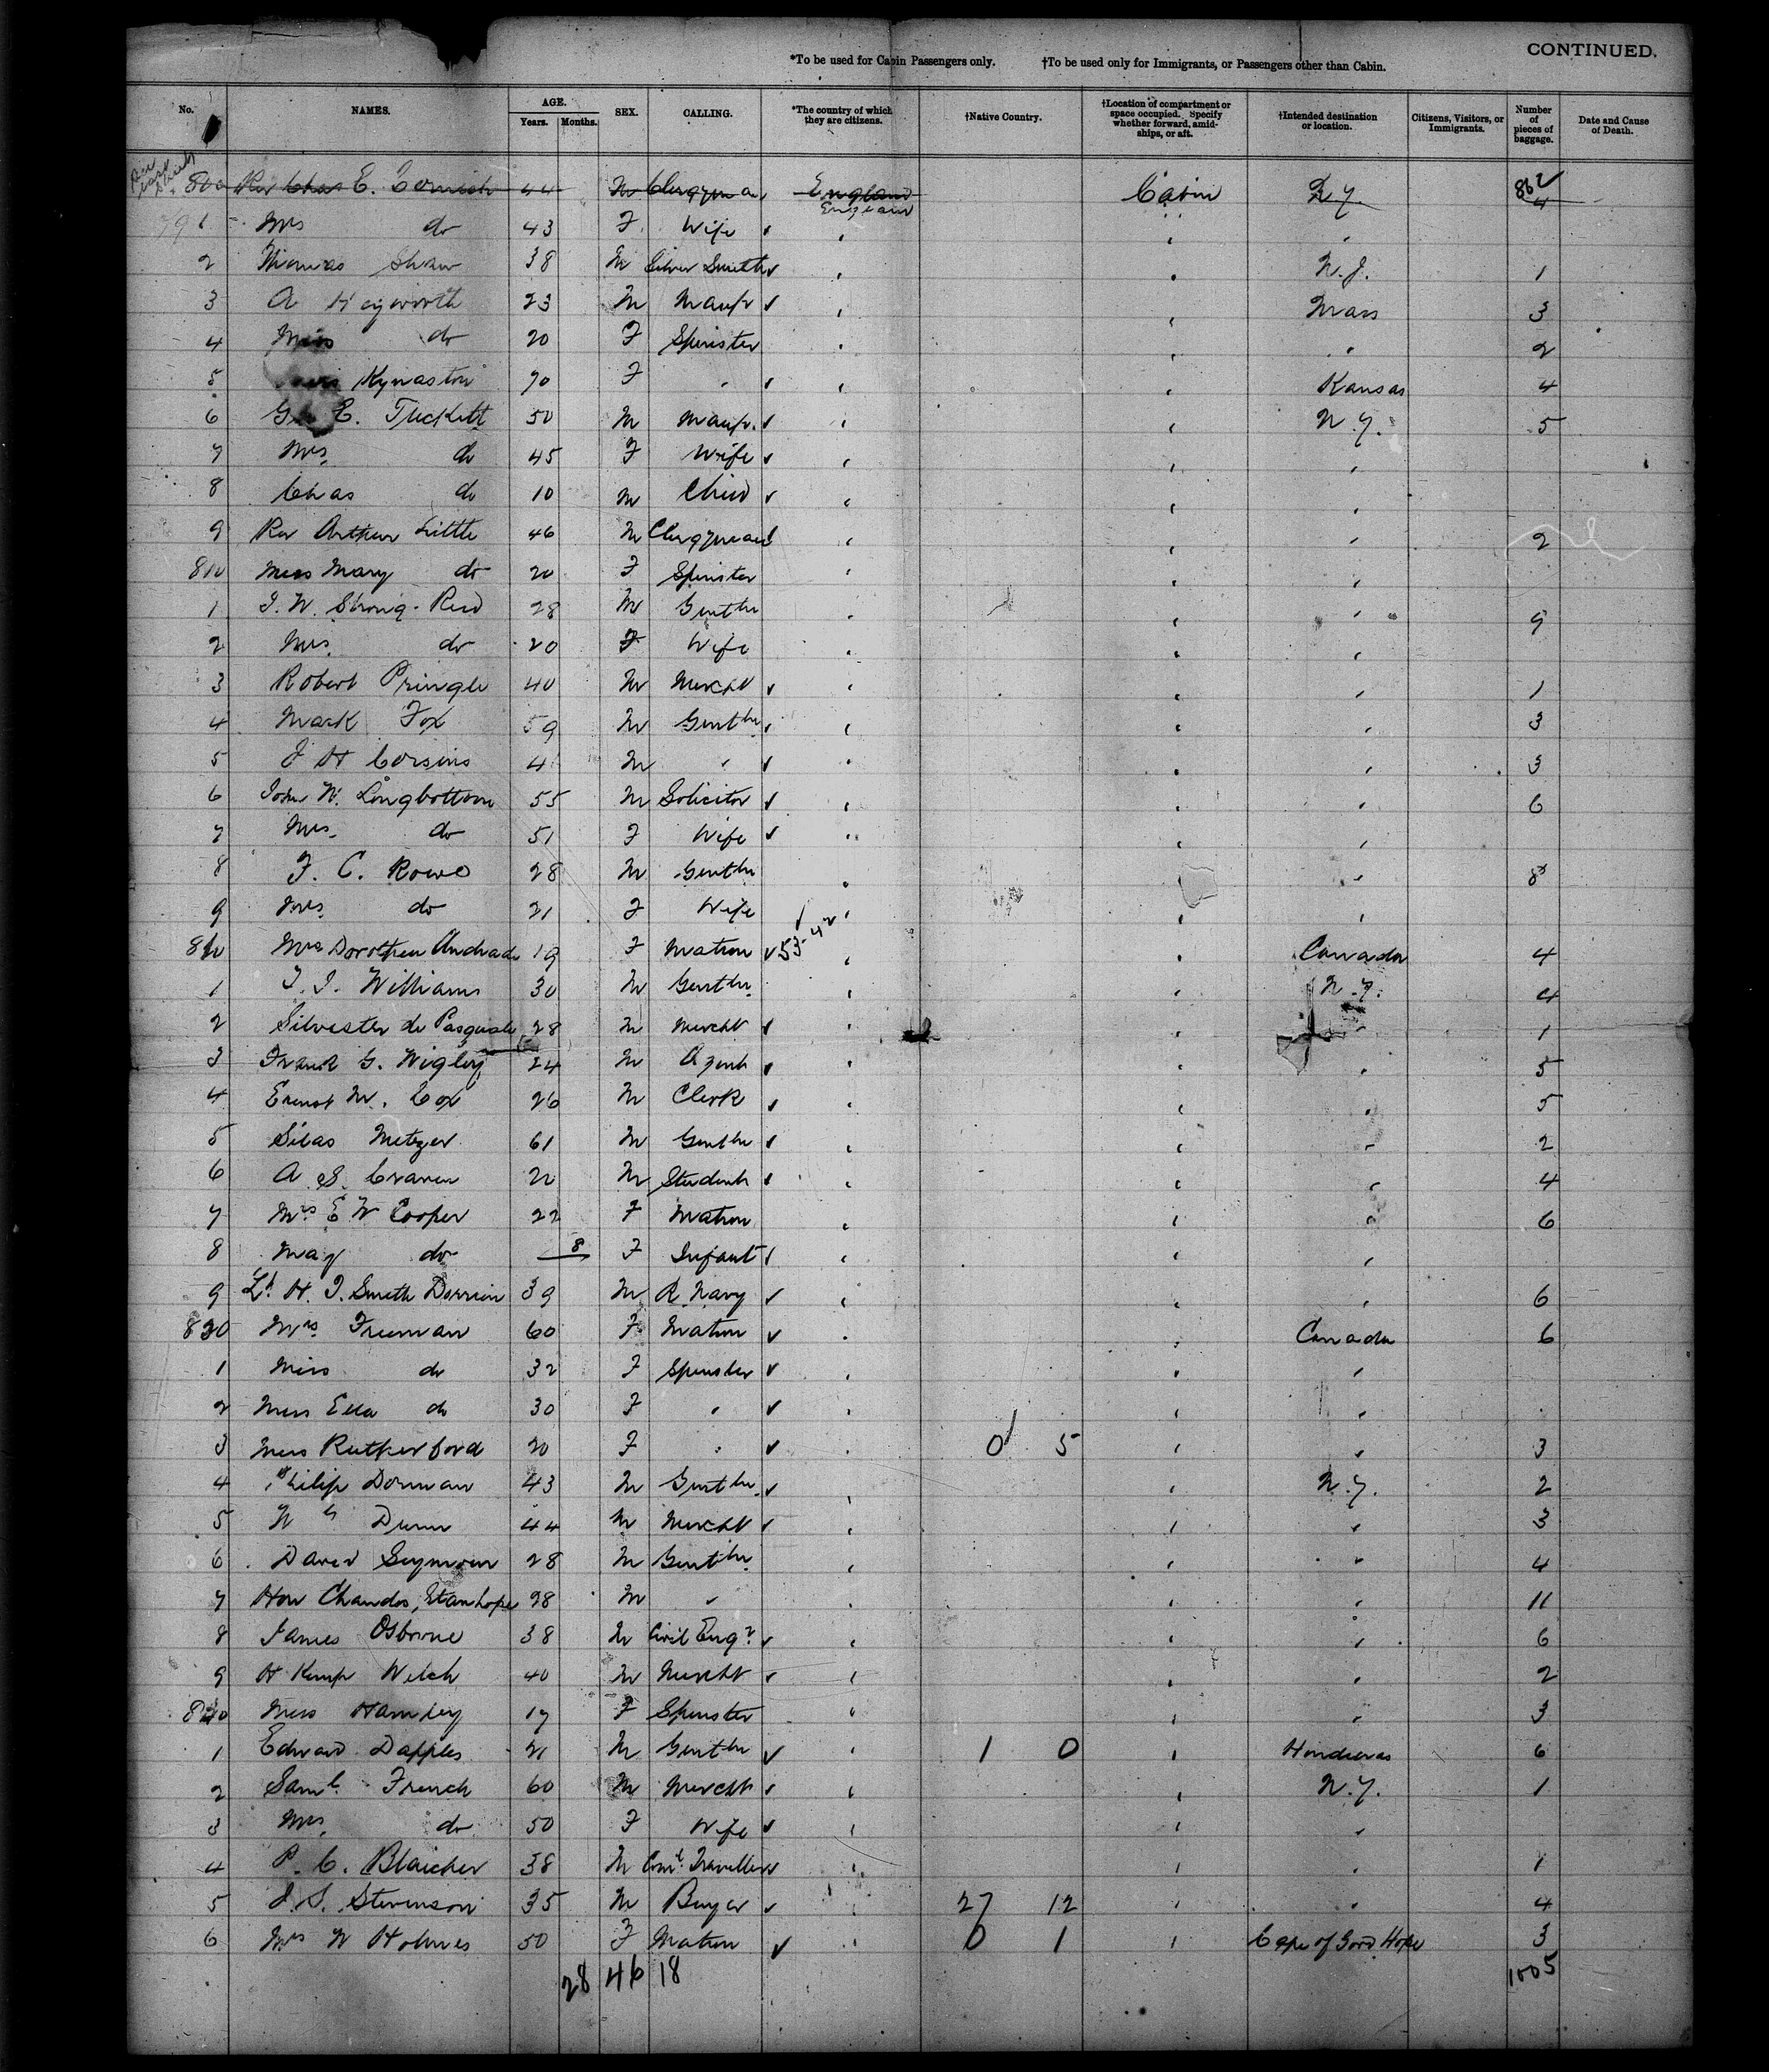 CONTINUED.
*To be used for Cabin Passengers only. †To be used only for Immigrants, or Passengers other than Cabin.
No. NAMES. AGE. Years. Months. SEX. CALLING. *The country of which they are citizens. †Native Country. †Location of compartment or space occupied. Specify whether forward, amid-ships, or aft. †Intended destination or location. Citizens, Visitors, or Immigrants. Number of pieces of baggage. Date and Cause of Death.
800 Rev Chas E. Cornish 44 M Clergyman England Cabin N.Y. 862 4
England
1 Mrs do 43 F Wife
2 Thomas Shaw 38 M Silver Smith N.J. 1
3 A Heyworth 23 M Manfr Mass 3
4 Miss do 20 F Spinster " 2
5 Kynaston 70 F " Kansas 4
6 Geo E. Tuckett 50 M Manfr. N.Y. 5
7 Mrs. do 45 F Wife
8 Chas do 10 M Child
9 Rev Arthur Little 46 M Clergyman 2
810 Miss Mary do 20 F Spinster
1 J. W. Strong-Reid 28 M Gentln 9
2 Mrs. do 20 F Wife
3 Robert Pringle 40 M Mercht 1
4 Mark Fox 59 M Gentln 3
5 J H Corsins 4 M " 3
6 John W. Longbottom 55 M Solicitor 6
7 Mrs. do 51 F Wife
8 F. C. Rowe 28 M Gentln 8
9 Mrs do 21 F Wife
820 Mrs Dorothea Andrade 19 F Matron 53-42 Canada 4
1 T. J. Williams 30 M Gentln. N.Y. 4
2 Silvester de Pasquale 28 M Mercht 1
3 Frank G. Wigley 24 M Agent 5
4 Ernest M. Cox 26 M Clerk 5
5 Silas Metzger 61 M Gentln 2
6 A. S. Craven 22 M Student 4
7 Mrs E W Cooper 22 F Matron 6
8 May do 8 F Infant
9 Lt H. T. Smith Dorrien 39 M R. Navy 6
830 Mrs Freeman 60 F Matron Canada 6
1 Miss do 32 F Spinster
2 Miss Ella do 30 F "
3 Miss Rutherford 20 F " 0 5 3
4 Philip Dorman 43 M Gentln. N.Y. 2
5 Wm Dunn 44 M Mercht 3
6 David Seymour 28 M Gentln. 4
7 Hon Chandos, Stanhope 28 M " 11
8 James Osborne 38 M Civil Engr 6
9 H Kemp Welch 40 M Mercht 2
840 Miss Hamley 17 F Spinster 3
1 Edward Dapples 21 M Gentln 1 0 Honduras 6
2 Saml French 60 M Mercht N.Y. 1
3 Mrs. do 50 F Wife
4 P. C. Blaicher 38 M Coml Traveller 1
5 J. S. Stevenson 35 M Buyer 27 12 4
6 Mrs W Holmes 50 F Matron 0 1 Cape of Good Hope 3
28 46 18 1005